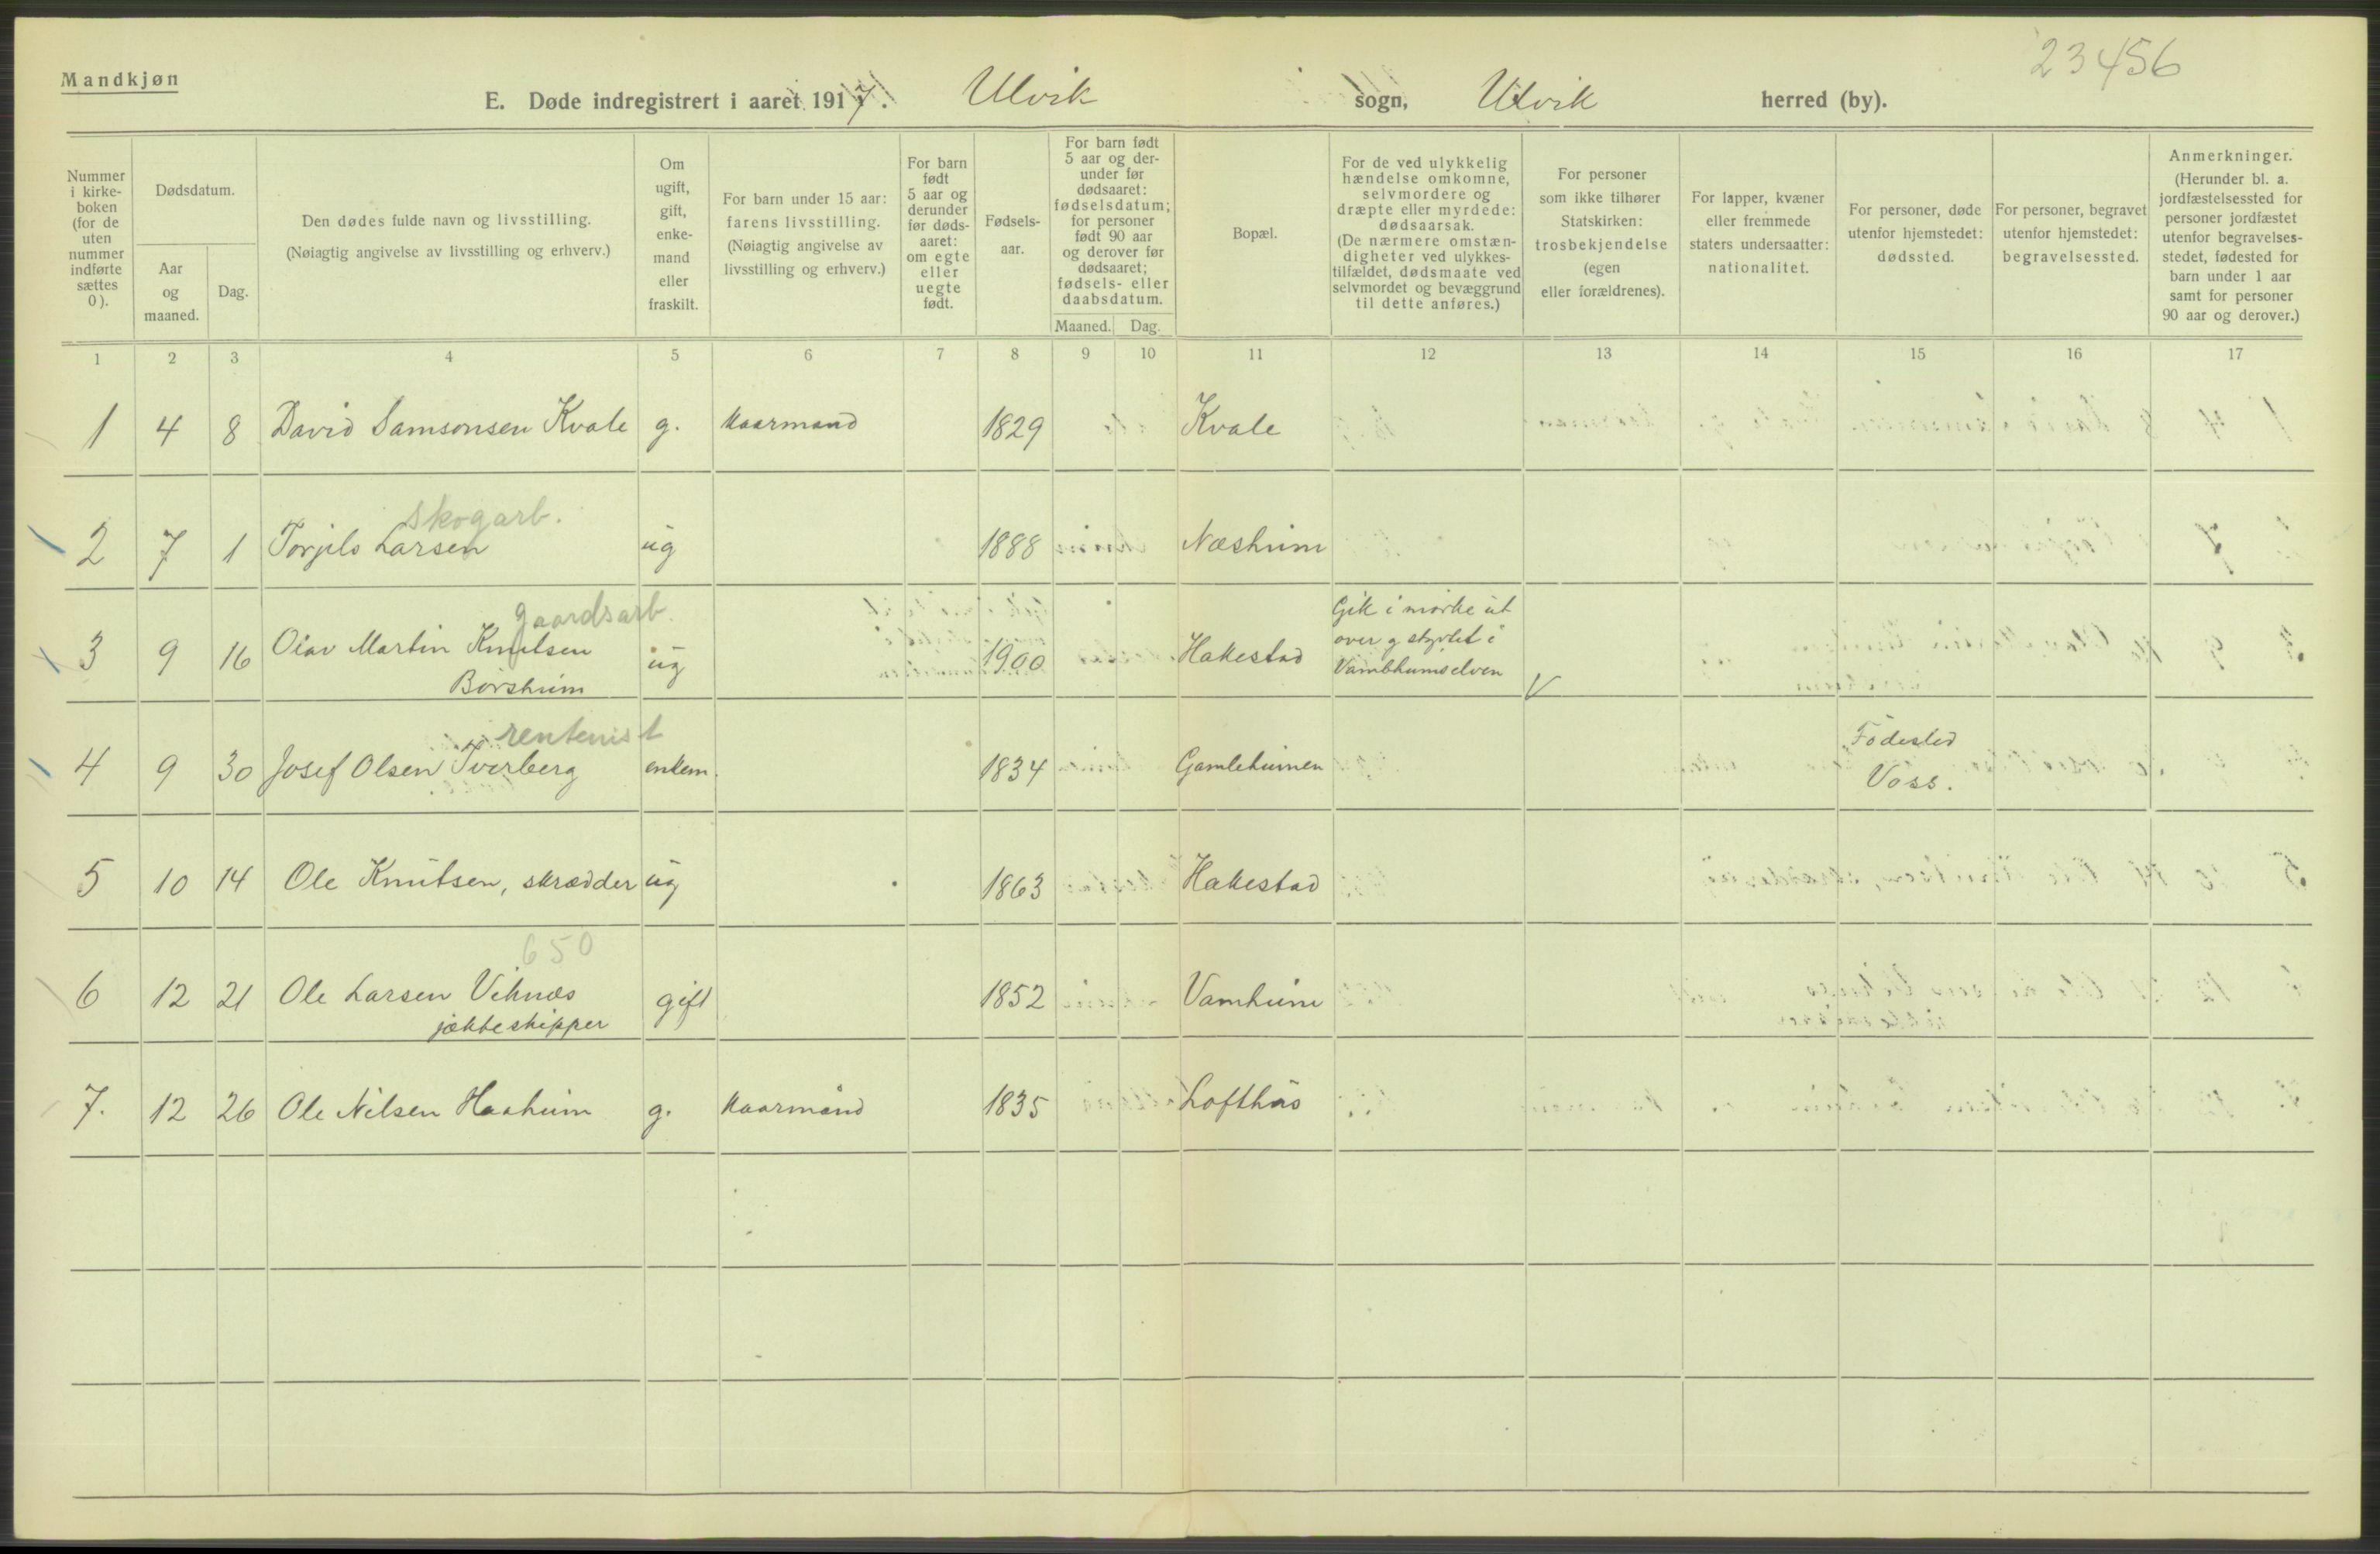 23456
Mandkjøn
E. Døde indregistrert i aaret 1917. Ulvik sogn, Ulvik herred (by).
Nummer i kirkeboken (for de uten nummer indførte sættes 0).
Dødsdatum.
Aar og maaned.
Dag.
Den dødes fulde navn og livsstilling.
(Nøiagtig angivelse av livsstilling og erhverv.)
Om ugift, gift, enkemand eller fraskilt.
For barn under 15 aar: farens livsstilling.
(Nøiagtig angivelse av livsstilling og erhverv.)
For barn født 5 aar og derunder før dødsaaret: om egte eller uegte født.
Fødselsaar.
For barn født 5 aar og derunder før dødsaaret: fødselsdatum; for personer født 90 aar og derover før dødsaaret; fødsels- eller daabsdatum.
Maaned. Dag.
Bopæl.
For de ved ulykkelig hændelse omkomne, selvmordere og dræpte eller myrdede: dødsaarsak.
(De nærmere omstændigheter ved ulykkestilfældet, dødsmaate ved selvmordet og bevæggrund til dette anføres.)
For personer som ikke tilhører Statskirken: trosbekjendelse (egen eller forældrenes).
For lapper, kvæner eller fremmede staters undersaatter: nationalitet.
For personer, døde utenfor hjemstedet: dødssted.
For personer, begravet utenfor hjemstedet: begravelsessted.
Anmerkninger.
(Herunder bl. a. jordfæstelsessted for personer jordfæstet utenfor begravelsesstedet, fødested for barn under 1 aar samt for personer 90 aar og derover.)
1 2 3 4 5 6 7 8 9 10 11 12 13 14 15 16 17
1 4 8 David Samsonsen Kvale g. kaarmand 1829 Kvale
skogarb.
2 7 1 Torjils Larsen ug 1888 Næsheim
gaardsarb.
3 9 16 Olav Martin Knutsen ug 1900 Hakestad
Børsheim
Gik i mørke ut
over og styrtet i
V
rentenist
4 9 30 Josef Olsen Tverberg enkem. 1834 Gamleheimen
Fødested
Voss.
5 10 14 Ole Knutsen, skrædder ug 1863 Hakestad
650
6 12 21 Ole Larsen Viknæs gift 1852 Vamheim
jækteskipper
7. 12 26 Ole Nilsen Haaheim g. kaarmand 1835 Lofthus